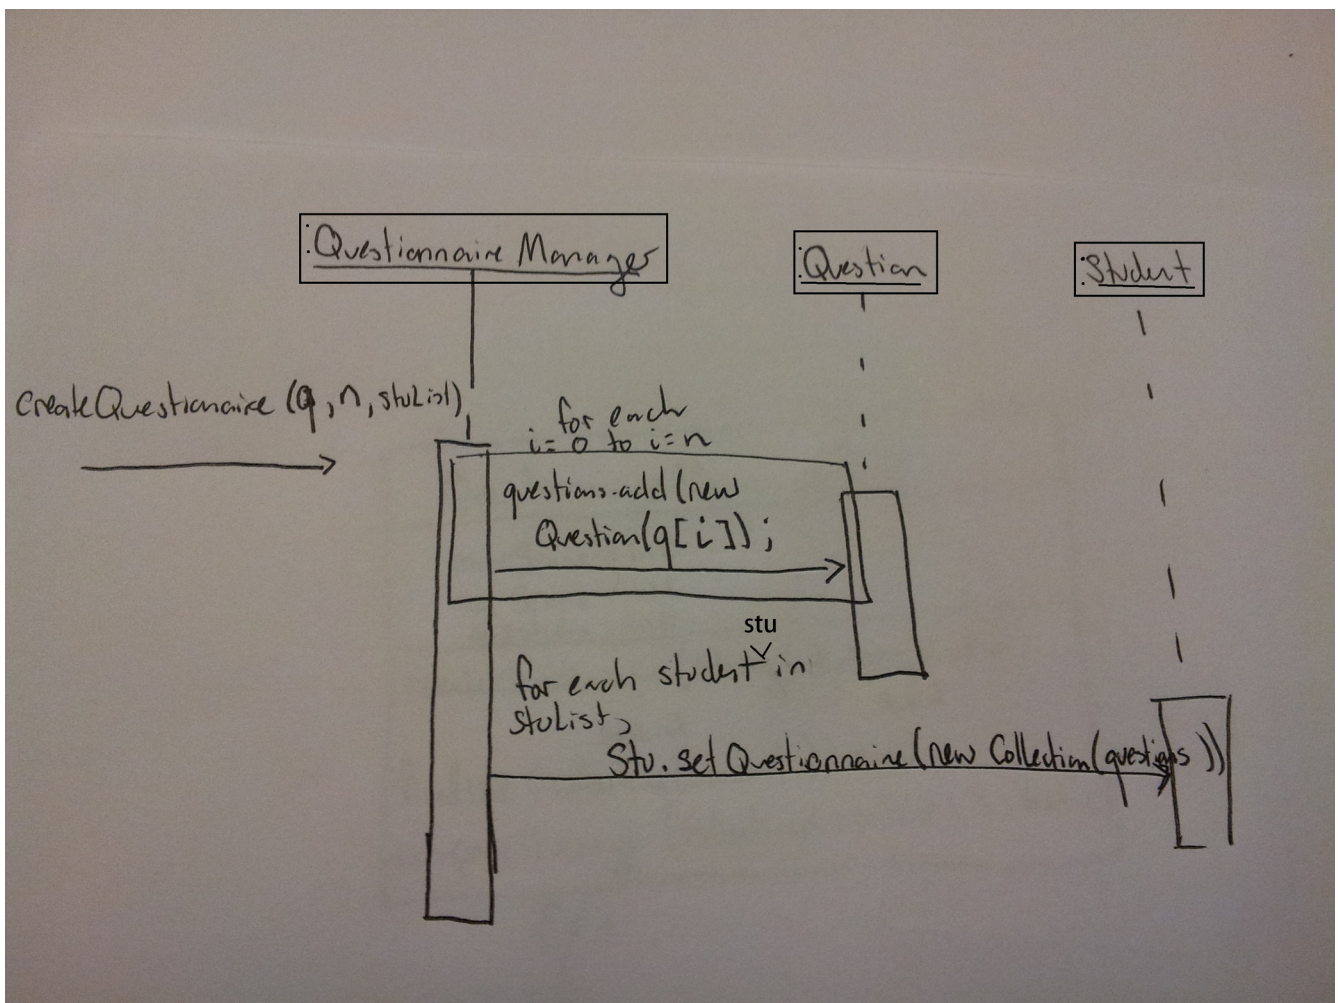 :Questionnaire Manager
:Question
:Student
createQuestionaire (q, n, stuList)
for each
i= 0 to i=n
questions.add(new
Question(q[i]));
stu
for each student in
stuList,
Stu.setQuestionnaire(new Collection(questions))